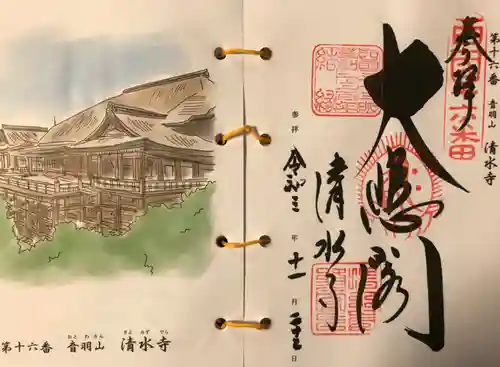 第十六番 音羽山 清水寺
奉拝
大悲閣
清水寺
参拝 令和三年十一月 日
おとわさん きよみずでら
第十六番 音羽山 清水寺